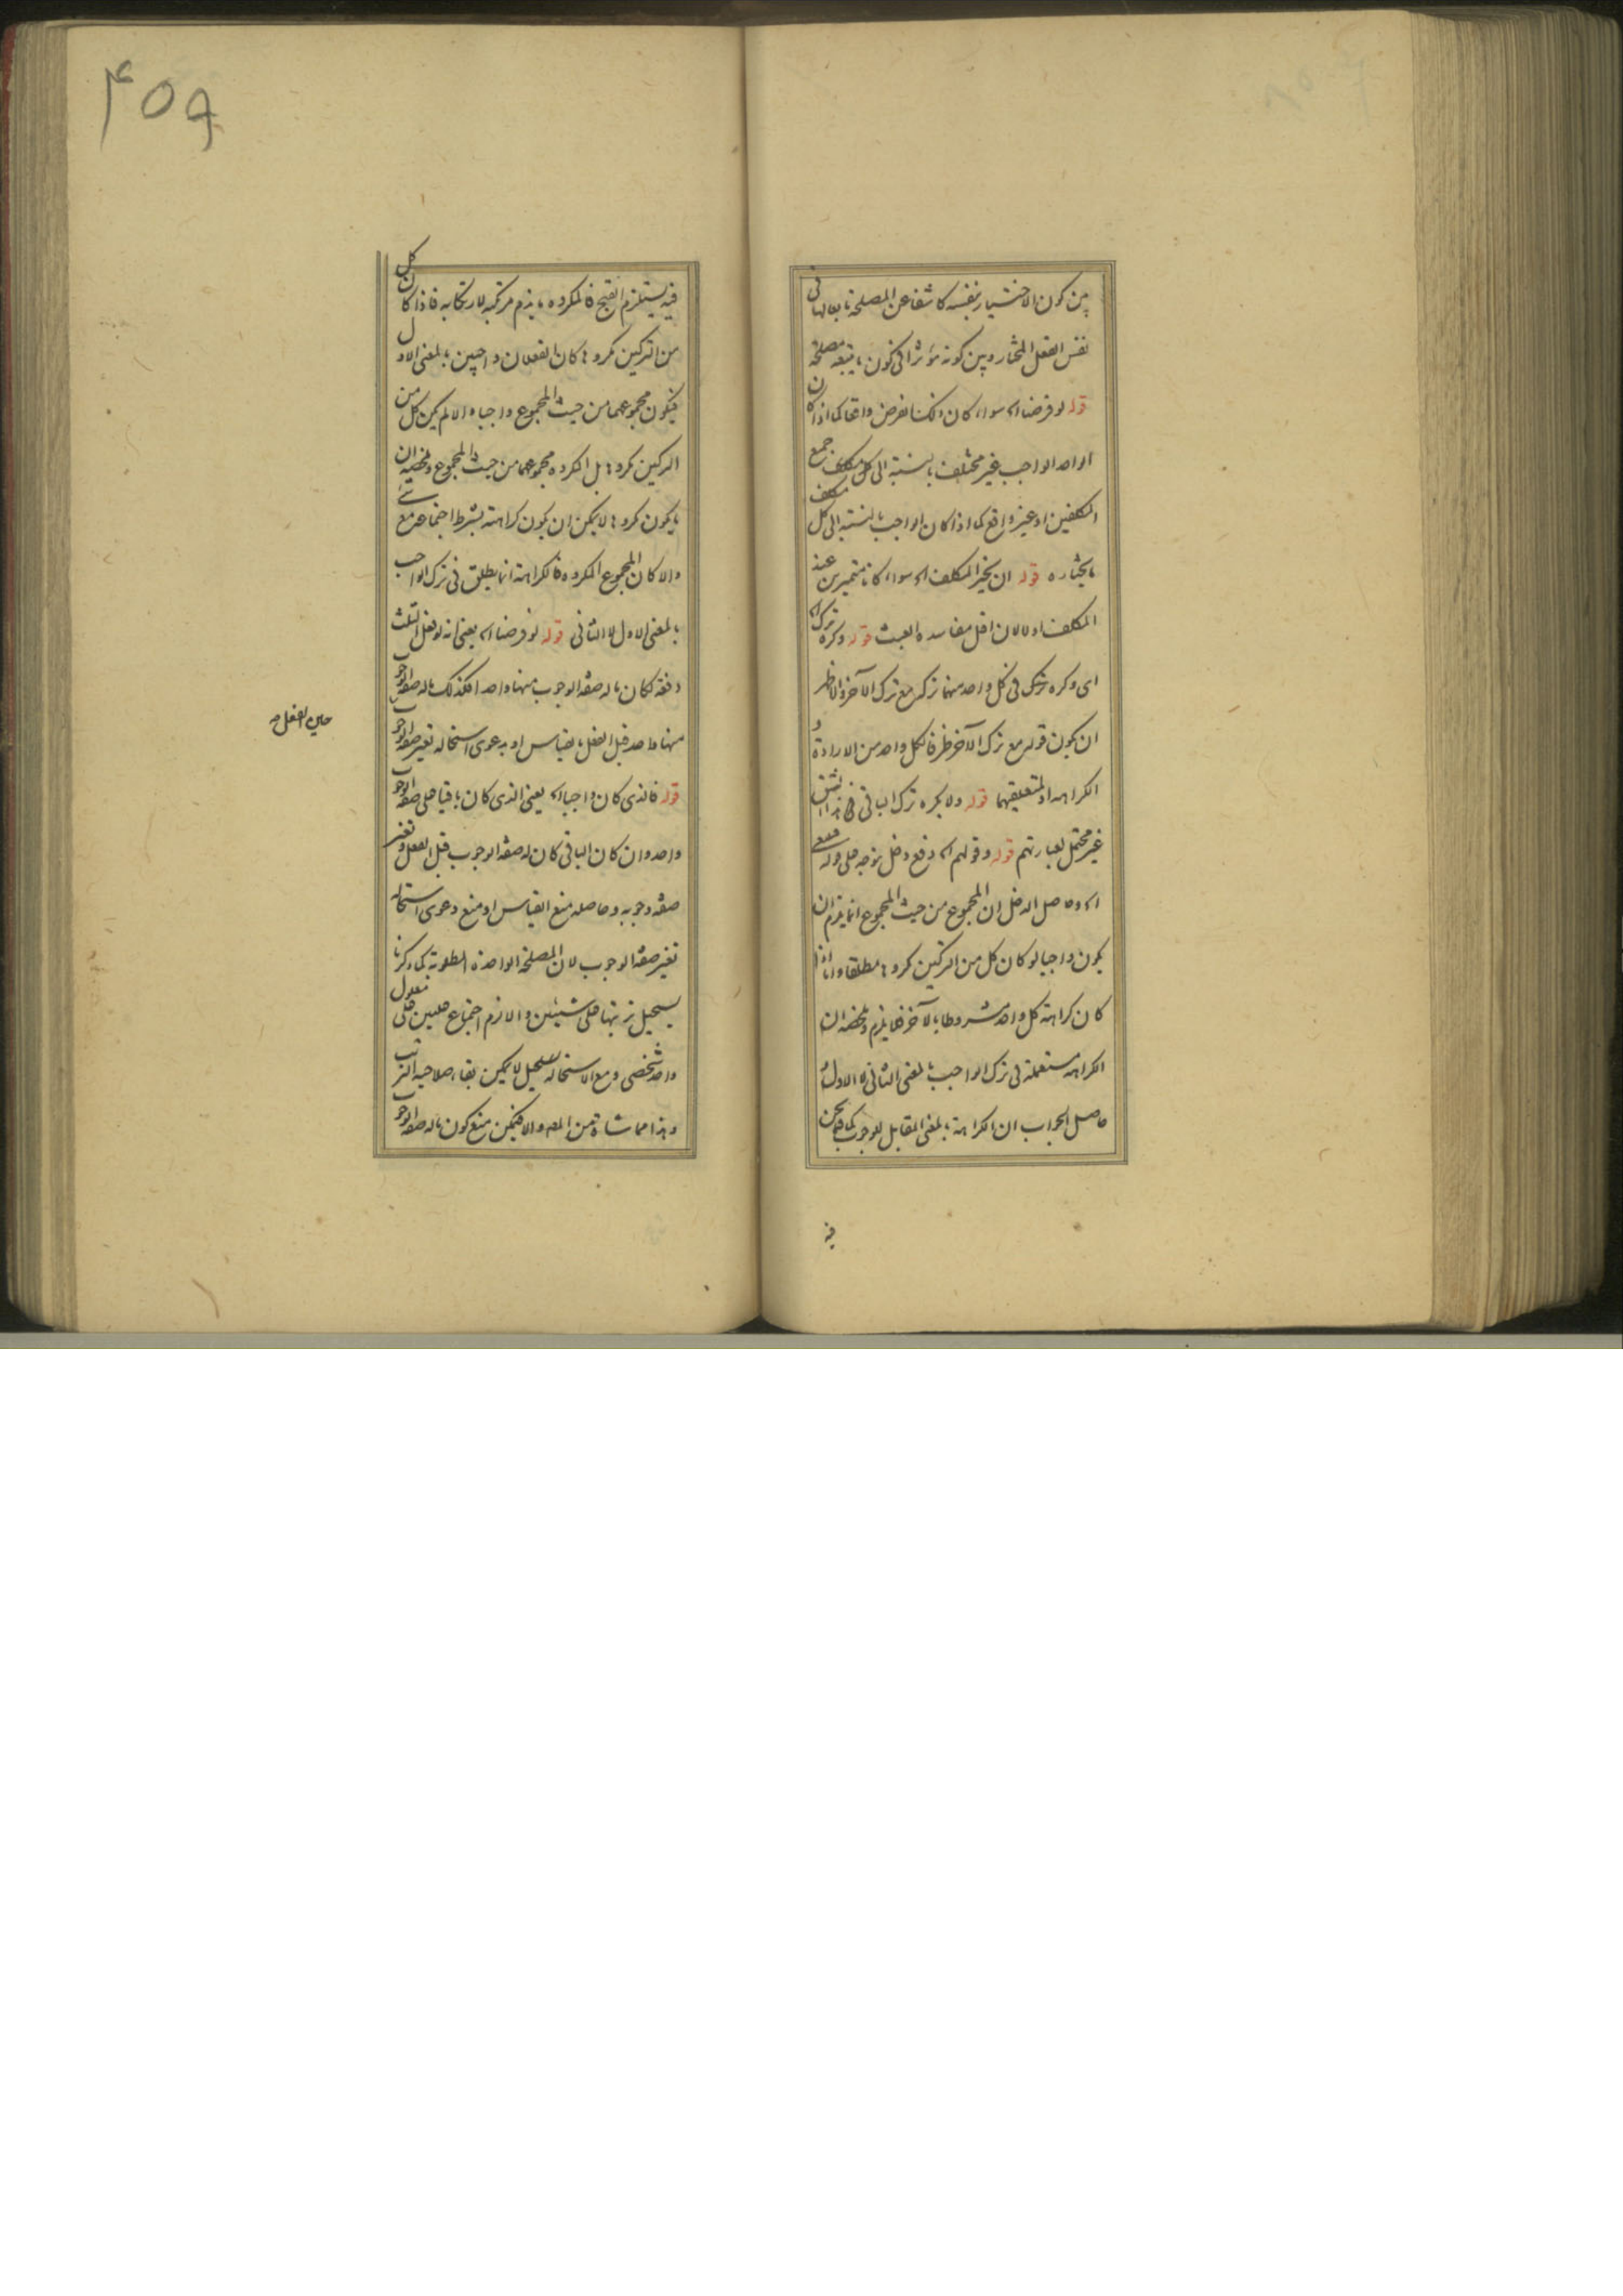 بين كون الاختيار بنفسه كاشفا عن المصلحة تابعا لها في
نفس الفعل المختار وبين كونه مؤثرا في كون ما يتبعه مصلحة
قوله لو فرضنا اه سواء كان ذلك الفرض واقعا كما اذا كان
الواحد الواجب غير مختلف بالنسبة الى كل مكلف جميع
المكلفين او غير واقع كما اذا كان الواجب بالنسبة الى كل مكلف
ما يختاره قوله ان يخير المكلف اه سواء كانا متميزين عند
المكلف او لا لان اقل مفاسده العبث قوله وكره ترك اه
اى وكره ترك فى كل واحد منهما تركه مع ترك الآخر والاظهر
ان يكون قوله مع ترك الآخر ظرفا لكل واحد من الارادة و
الكراهه او لمتعلقيهما قوله ولا يكره ترك الباقى فى هذا الشق
غير محتمل لعبارتهم قوله وقولهم اه دفع دخل توجه على قوله فمعنى
اه وحاصل الدخل ان المجموع من حيث المجموع انما يلزم ان
يكون واجبا لو كان كل من التركين مكروها مطلقا واما اذا
كان كراهة كل واحد مشروطا بالآخر فلا يلزم وملخصه ان
الكراهه مستعملة فى ترك الواجب بالمعنى الثانى لا الاول و
حاصل الجواب ان الكراهة بالمعنى المقابل للوجوب كما نحن
فيه
٤٥٩
فيه يستلزم القبح فالمكروه ما يذم مرتكبه لارتكابه فاذا كان كل
من التركين مكروها كان الفعلان واجبين بالمعنى الاول
فيكون مجموعهما من حيث المجموع واجبا والا لم يكن كل من
التركين مكروها بل المكروه مجموعهما من حيث المجموع وملخصه ان
ما يكون مكروها لا يمكن ان يكون كراهته بشرط اجتماعه مع شئ
والا كان المجموع المكروه فالكراهة انما يطلق فى ترك الواجب
بالمعنى الاول لا الثانى قوله لو فرضنا اه يعنى انه لو فعل الثلث
دفعة لكان ما له صفة الوجوب منها واحدا فكذلك ما له صفة الوجوب
منها واحد قبل الفعل بالقياس او بدعوى استحالة تغير صفة الوجوب
حين الفعل صح
قوله فالذى كان واجبا اه يعنى الذى كان باقيا على صفة الوجوب
واحد وان كان الباقى كان له صفة الوجوب قبل الفعل وتغير
صفة وجوبه وحاصله منع القياس او منع دعوى استحالة
تغير صفة الوجوب لان المصلحة الواحدة المطلوبة كما ذكرنا
يستحيل ترتبها على شيئين والا لزم اجتماع علتين على معلول
واحد شخصى ومع الاستحالة يستحيل لا يمكن بقاء صلاحية الترتب
وهذا مماشاة من المص والا فيمكن منع كون ما له صفة الوجوب